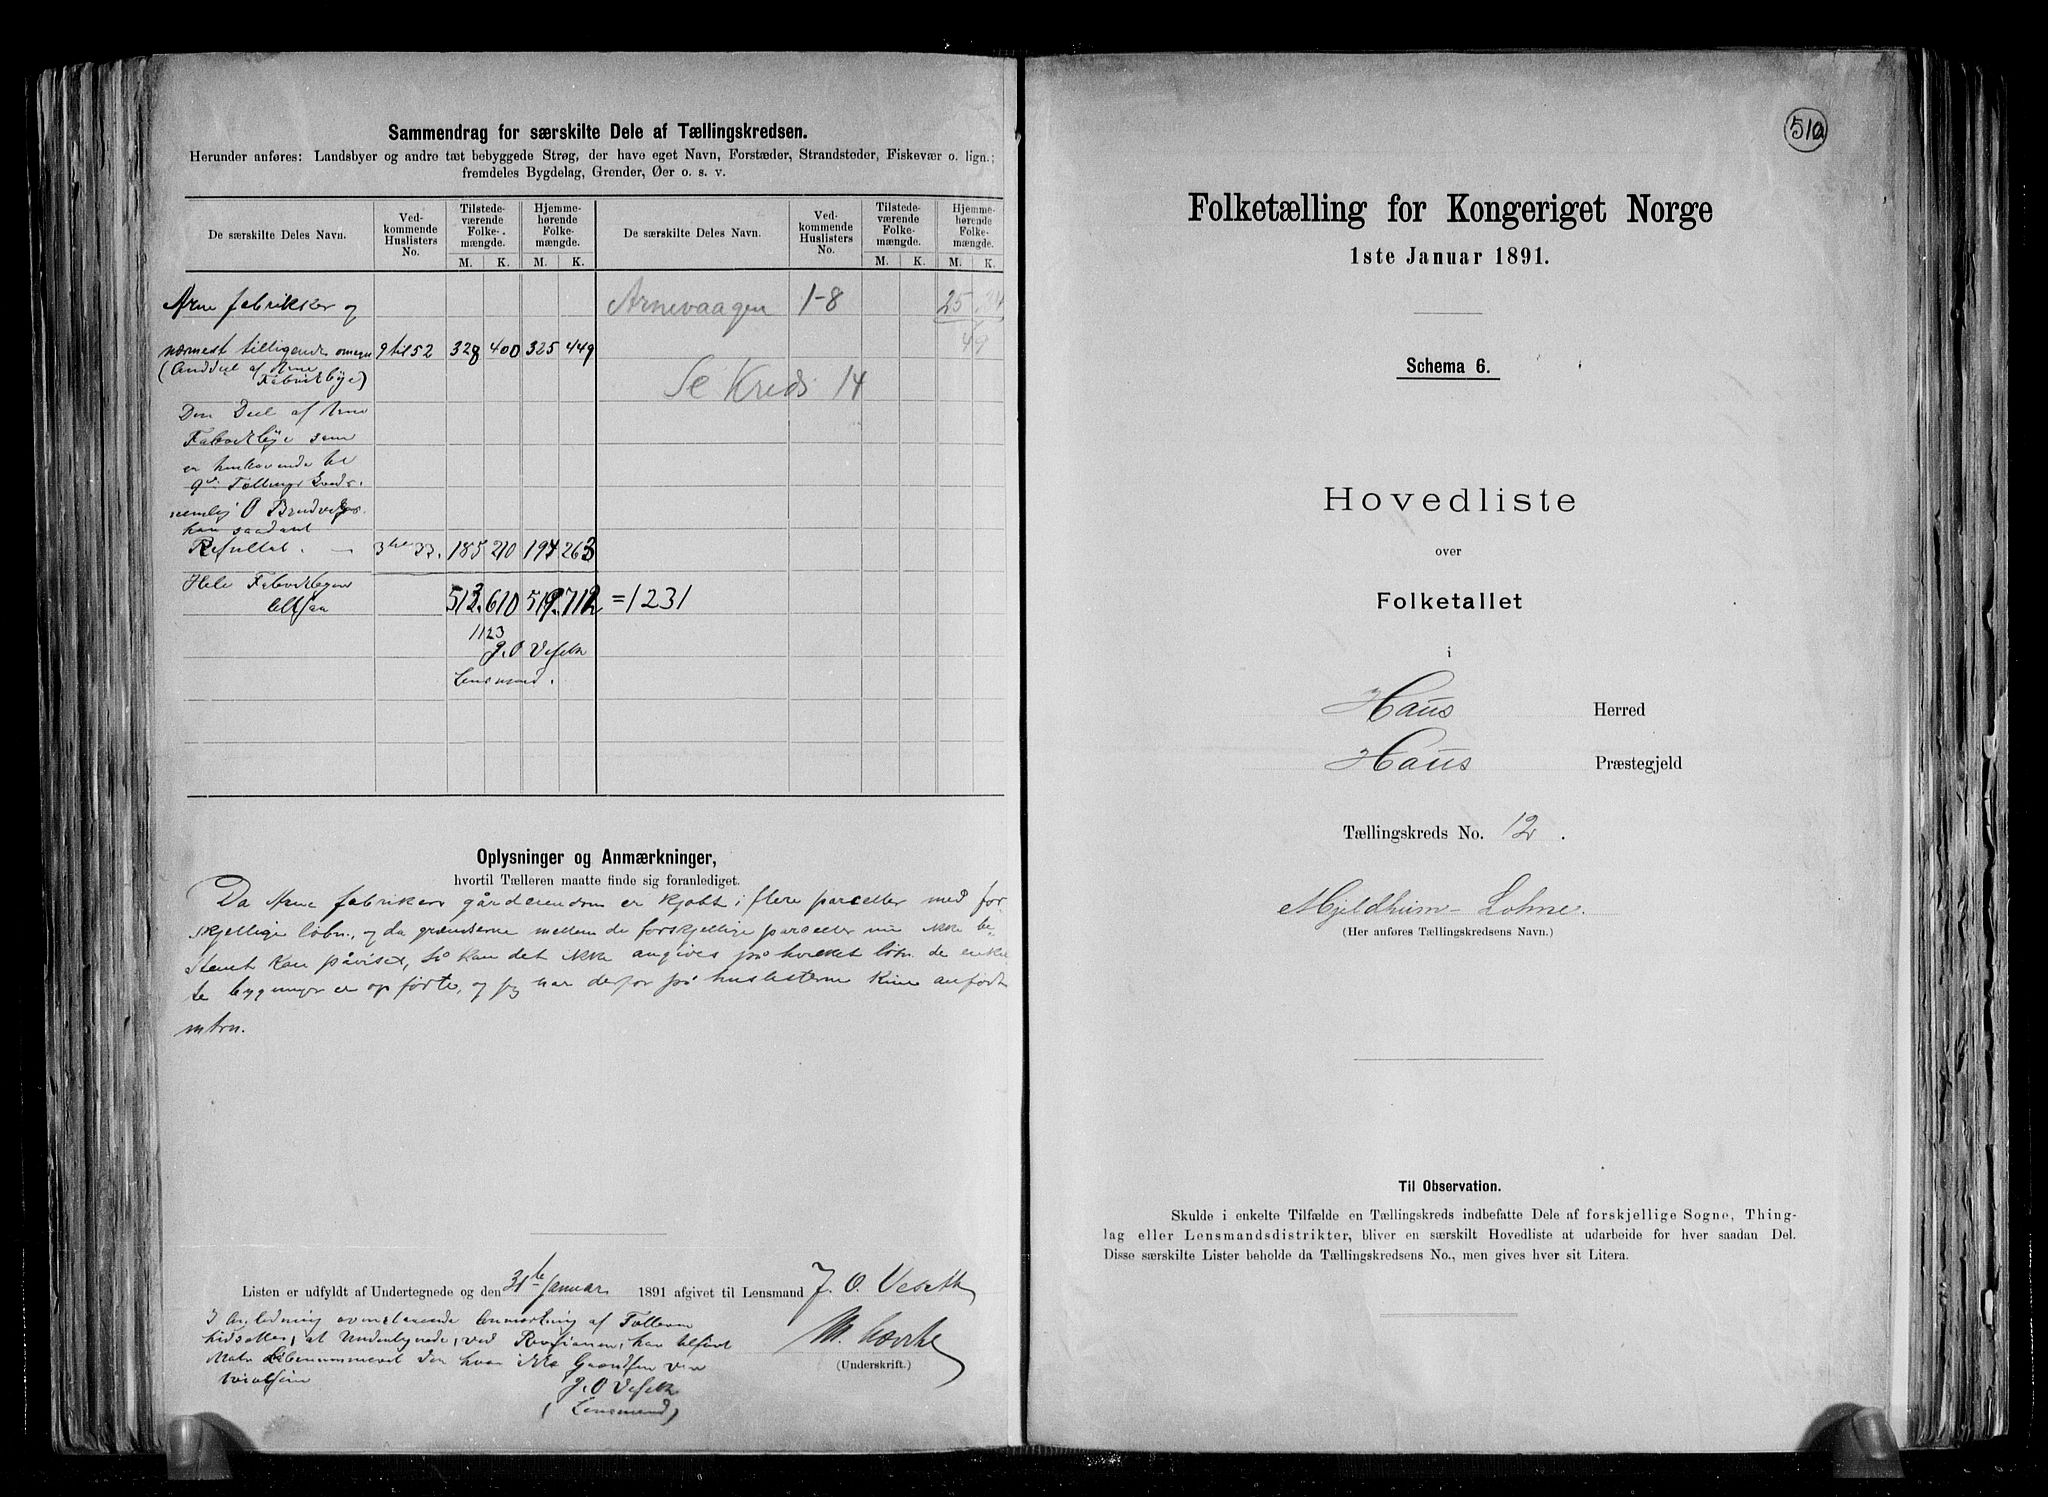 Sammendrag for særskilte Dele af Tællingskredsen.
Herunder anføres: Landsbyer og andre tæt bebyggede Strøg, der have eget Navn, Forstæder, Strandsteder, Fiskevær o. lign.;
fremdeles Bygdelag, Grender, Øer o. s. v.
De særskilte Deles Navn.
Ved-
kommende
Huslisters
No.
Tilstede-
værende
Folke-
mængde.
Hjemme-
hørende
Folke-
mængde.
De særskilte Deles Navn.
Ved-
kommende
Huslisters
No.
Tilstede-
værende
Folke-
mængde.
Hjemme-
hørende
Folke-
mængde.
M. K. M. K. M. K. M. K.
Arne fabrikker og Arnevaagen 1-8 25 24
nærmest tilligende omegn 9 til 52 328 400 325 449 49
(Anddeel af Arne
Fabrikbye) Se Kreds 14
Den Deel af Arne
Fabrikbye som
er henhørende til
9de Tællings Kreds
nemlig O
har saadant
Resultat. 3 til 33. 185 210 194 263
Hele Fabrikbyen
altsaa 513 610 519 712 =1231
1123
J. O Veseth
Lensmand.
Oplysninger og Anmærkninger,
hvortil Tælleren maatte finde sig foranlediget.
Da Arne fabrikers gårdeiendom er kjøbt i flere parceller med for
skjellige løbn., og da grændserne mellem de forskjellige parceller nu ikke be-
stemt kan påvises, så kan det ikke angives på hvilket løbn. de enkel-
te bygninger er opførte, og jeg har derfor på huslisterne kun anført
mtrn.
Listen er udfyldt af Undertegnede og den 31te Januar 1891 afgivet til Lensmand J. O. Veseth
I Anledning ovenstaaende Anmerkning af Tælleren
hidsettes, at Undertegnede, ved Revisionen, har tilføiet
Matr Løbenummeret den hvor ikke
J. O Veseth
(Lensmand)
(Underskrift.)
510
Folketælling for Kongeriget Norge
1ste Januar 1891.
Schema 6.
Hovedliste
over
Folketallet
i
Haus Herred
Haus Præstegjeld
Tællingskreds No. 12.
Mjeldheim - Lohne.
(Her anføres Tællingskredsens Navn.)
Til Observation.
Skulde i enkelte Tilfælde en Tællingskreds indbefatte Dele af forskjellige Sogne, Thing-
lag eller Lensmandsdistrikter, bliver en særskilt Hovedliste at udarbeide for hver saadan Del.
Disse særskilte Lister beholde da Tællingskredsens No., men gives hver sit Litera.